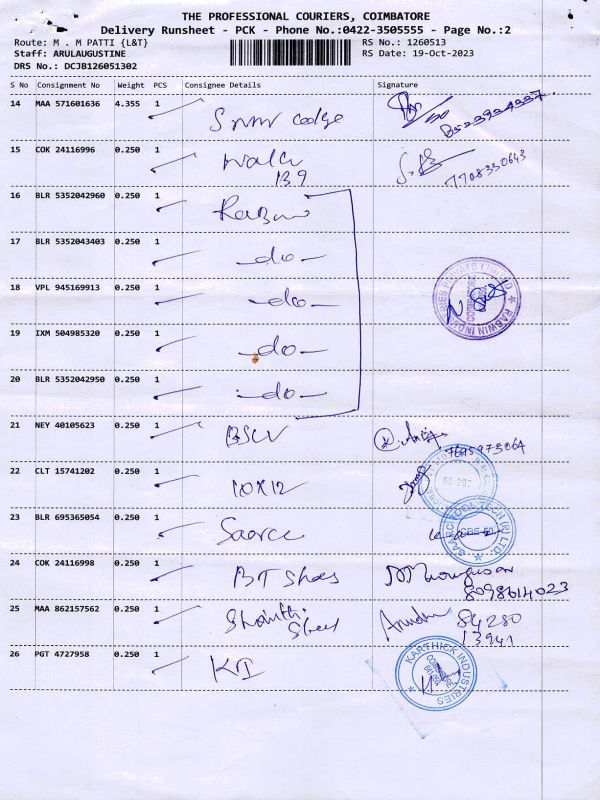 THE PROFESSIONAL COURIERS, COIMBATORE
Delivery Runsheet - PCK - Phone No.:0422-3505555 - Page No.:2
Route: M . M PATTI {L&T} RS No.: 1260513
Staff: ARULAUGUSTINE RS Date: 19-Oct-2023
DRS No.: DCJB126051302
S No Consignment No Weight PCS Consignee Details Signature
14 MAA 571601636 4.355 1
15 COK 24116996 0.250 1 7708330643
139
16 BLR 5352042960 0.250 1
17 BLR 5352043403 0.250 1 -do-
18 VPL 945169913 0.250 1 -do-
RABWIN INDUSTRIES PRIVATE LIMITED
19 IXM 504985320 0.250 1 -do-
20 BLR 5352042950 0.250 1 -do-
21 NEY 40105623 0.250 1
22 CLT 15741202 0.250 1 10X12
23 BLR 695365054 0.250 1
24 COK 24116998 0.250 1 BT Shoes
8098614023
25 MAA 862157562 0.250 1 Shanthi 84280
Steel 13941
26 PGT 4727958 0.250 1 KI
KARTHICK INDUSTRIES